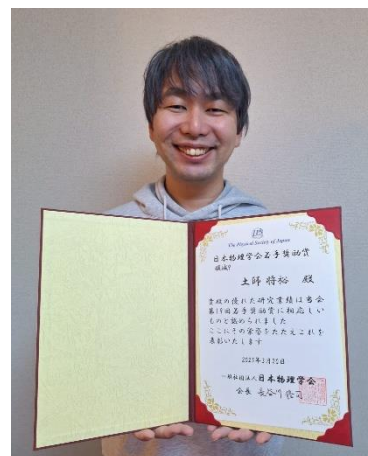 The Physical Society of Japan
日本物理学会若手奨励賞
領域9
土師将裕 殿
貴殿の優れた研究業績は当会
第19回若手奨励賞に相応しい
ものと認められました
ここにその栄誉をたたえこれを
表彰いたします
一般社団法人日本物理学会
会長 長谷川修司